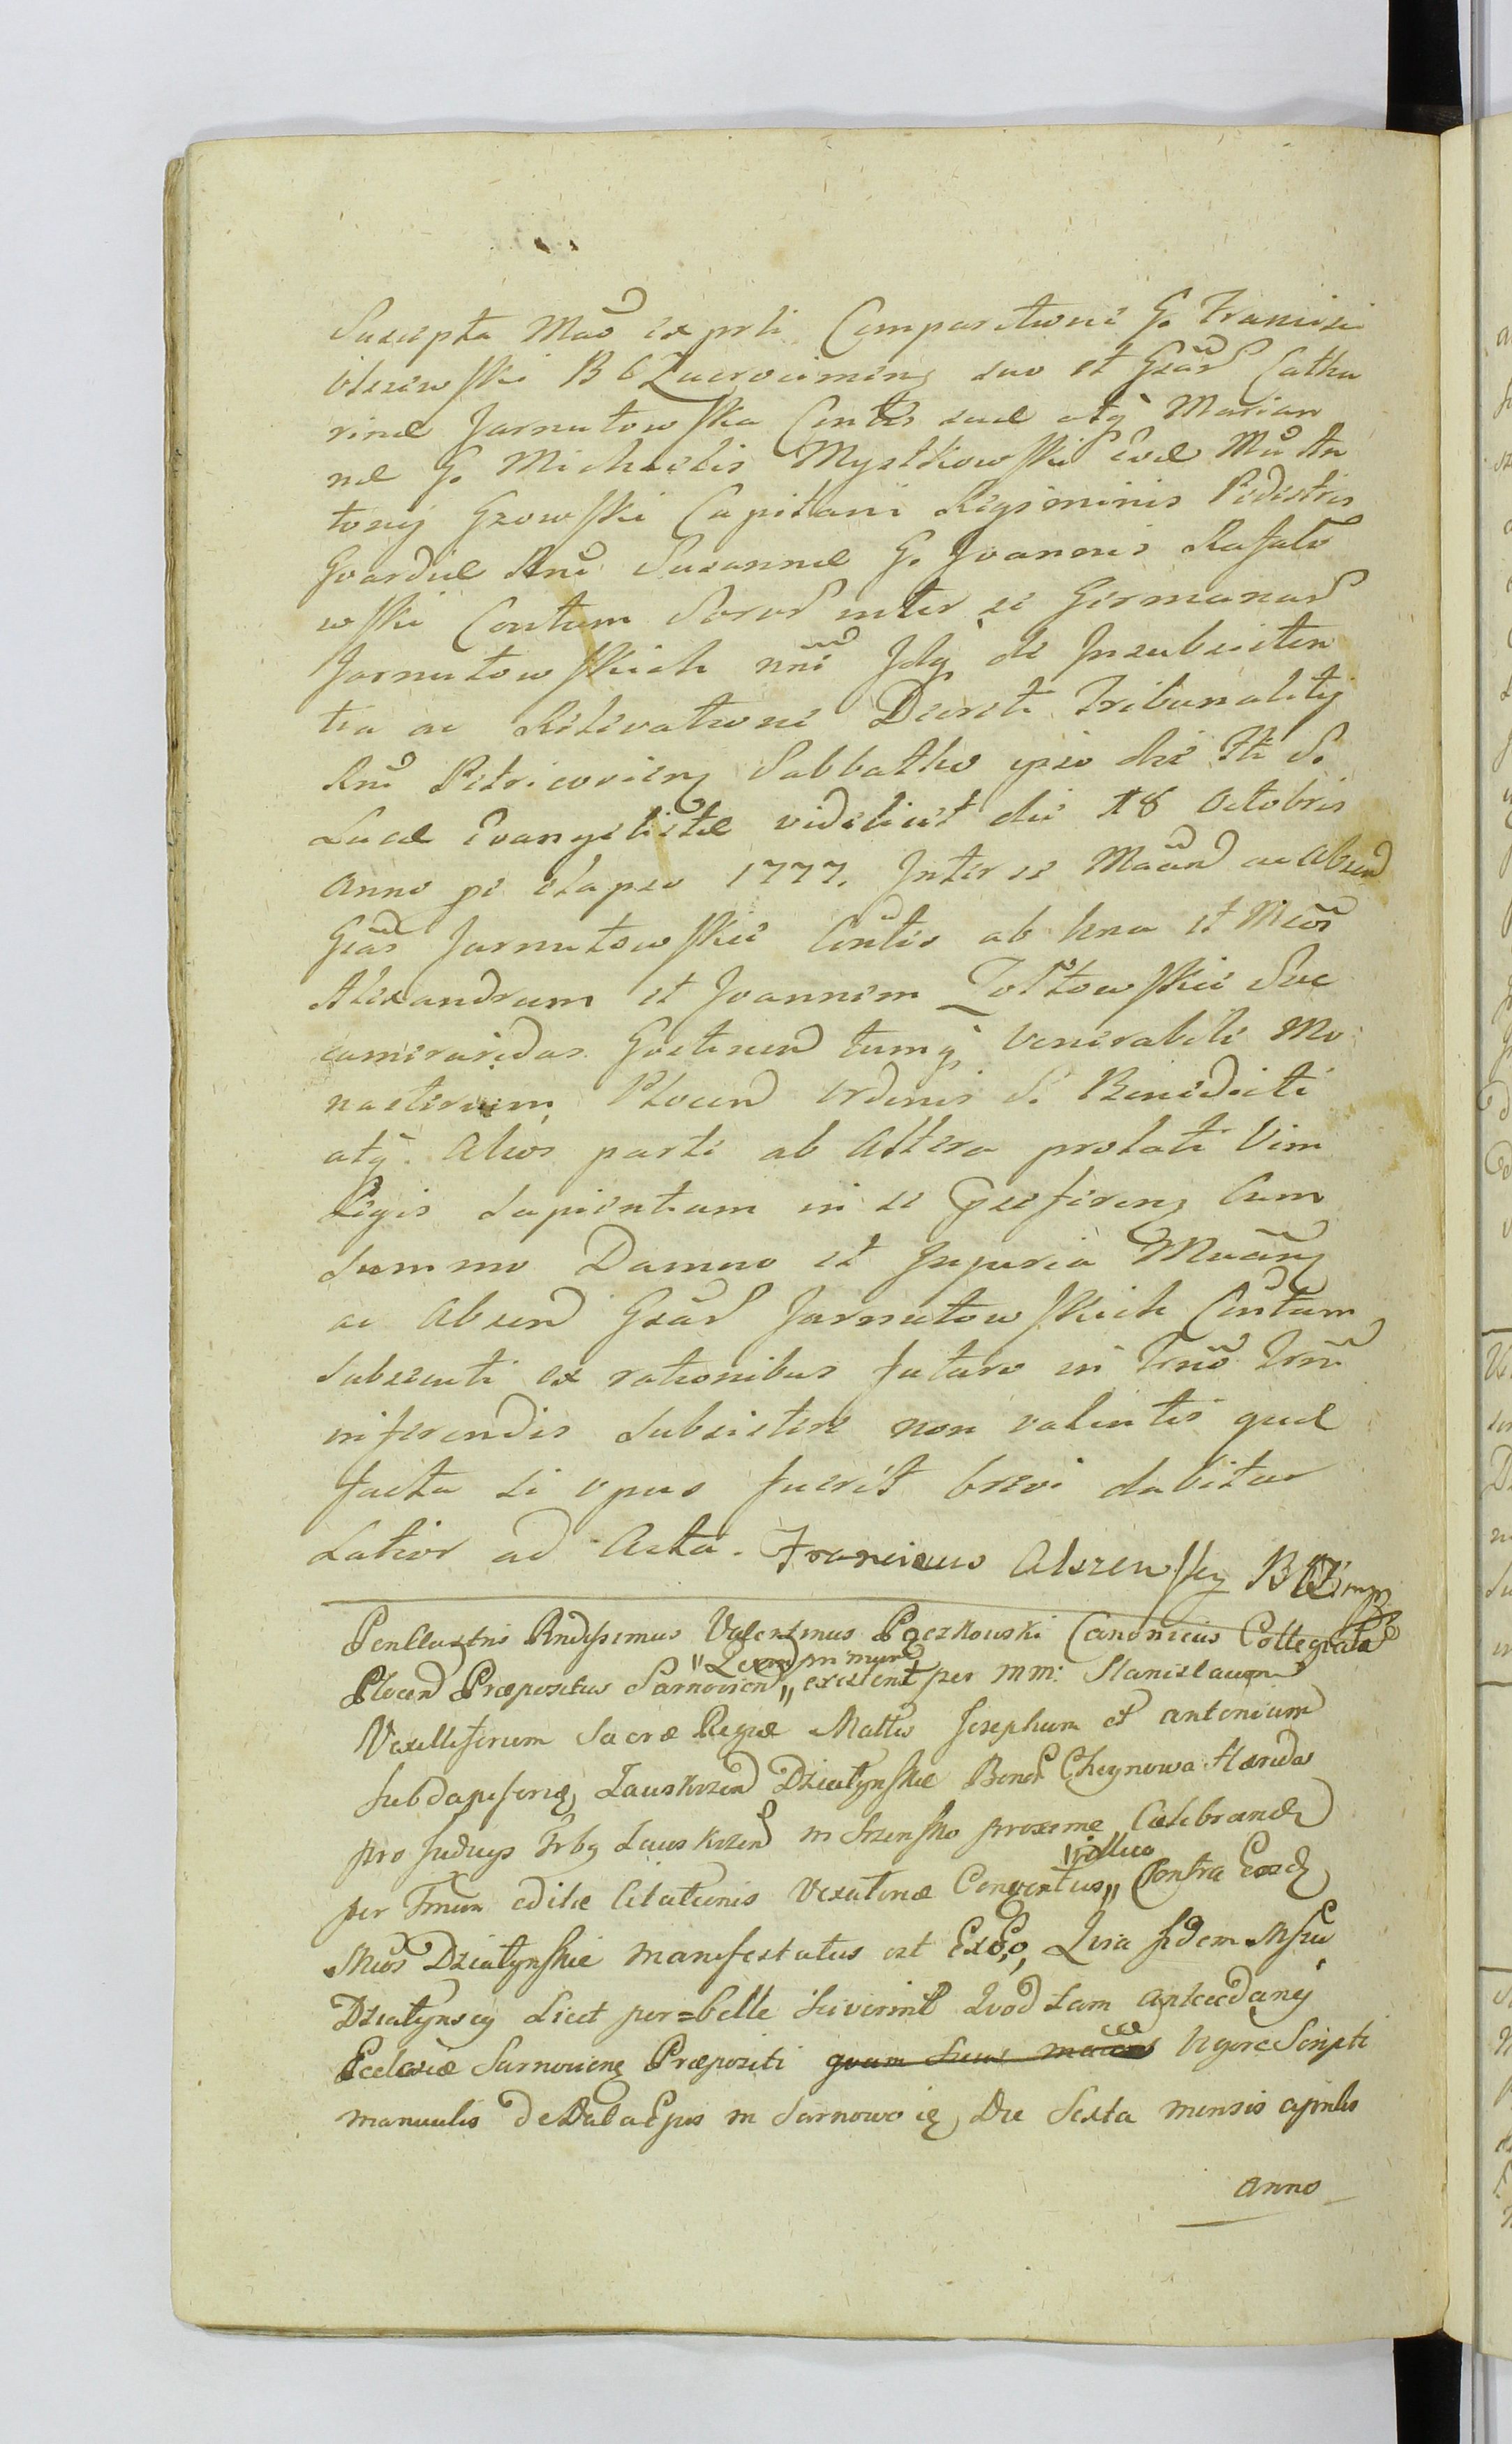 Suscepta Mao ex prli Comparitione G. Francisci
Olszewski B C Zacrocimens suo et Gsar Catha
rinæ Jarnutowska Contis suæ atq Marian
næ G. Michaelis Mystkowski Evæ Mu An
tonij Gzowski Capitani Regiminis Pedestris
Gvardiæ Rni Susannæ G. Joannis Rafalo
wski Contum Soror inter se Germanar
Jarnutowskich nni Jdq de Insubsisten
tia ac Relevatione Decreti Tribunality
Rni Petricoviens Sabbatho ipso die Fti S.
Lucæ Evangelistæ videlicet die 18 Octobris
Anno pe elapso 1777. Inter se Maand ac Absend
Gsas Jarnutowskie Contes ab una et Mcos
Alexandrum et Joannem Zołtowskie Suc
cameraridas Gostinen tumq Venerabile Mo
nasterium Plocen Ordinis S. Benedicti
atq. Alios parte ab Altera prolati Vim
Legis Sapientum in se preferens Cum
Summo Damno et Injuria Maans
ac Absend Gsar Jarnutowskich Contum
Subsecuti ex rationibus futuro in Trno Trni
inferendis Subsistere non valentis quæ
facta si opus fuerit brevi dabitur
Latior ad Acta. Franciscus Olszewsky B C Z mp
Penllustris Rndissimus Valentinus Pączkowski Canonicus Collegiatæ
Plocen Præpositus Sarnovien „ existent per MM: Stanislaum
Vexilliferum Sacræ Regiæ Mattis Josephum et Antonium
Subdapiferum Działynskie Bonor Cheynowa Hæredas
pro Judicys Trby in Srzensko proxime Celebrands
per Tmum editæ Citationis Vexatinæ Conventus „ illuo Contra Eosd
Mcos Działynskie manifestatus est Exoo, Quia Jidem Mfici
Działynscy Licet per=belle sciverint Quod Lam antecedanej
Ecclesiæ Sarnoviens Præpositi quam Suas Vigore Scripti
manualis de Data Ejus in Sarnowo Die Sexta mensis Aprilis
anno